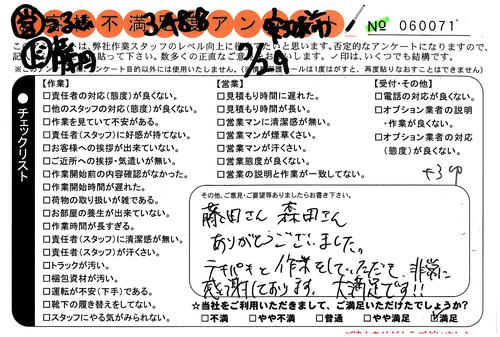 不満足度アンケート
№ 060071
このアンケートは、弊社作業スタッフのレベル向上に
と思います。否定的なアンケートになりますので、
貼って下さい。数多くの正直なご意見を
✓印は、いくつでも結構です。
※このアンケート目的以外には使用いたしません。
は1度はがすと、再度貼りなおすことはできません
チェックリスト
【作業】
□責任者の対応(態度)が良くない。
□他のスタッフの対応(態度)が良くない。
□作業を見ていて不安がある。
□責任者(スタッフ)に好感が持てない。
□お客様への挨拶が出来ていない。
□ご近所への挨拶・気遣いが無い。
□作業開始前の内容確認がなかった。
□作業開始時間が遅れた。
□荷物の取り扱いが雑である。
□お部屋の養生が出来ていない。
□作業時間が長すぎる。
□責任者(スタッフ)に清潔感が無い。
□責任者(スタッフ)が汗くさい。
□トラックが汚い。
□梱包資材が汚い。
□運転が不安(下手)である。
□靴下の履き替えをしてない。
□スタッフにやる気がみられない。
【営業】
□見積もり時間に遅れた。
□見積もり時間が長い。
□営業マンに清潔感が無い。
□営業マンが煙草くさい。
□営業マンが汗くさい。
□営業態度が良くない。
□営業の説明と作業が一致してない。
【受付・その他】
□電話の対応が良くない。
□オプション業者の説明
・作業が良くない。
□オプション業者の対応
(態度)が良くない。
その他、ご意見・ご要望等ありましたらお書き下さい。
藤田さん 森田さん
ありがとうございました。
テキパキと作業をしていただいて、非常に
感謝しております。大満足です!!
☆当社をご利用いただきまして、ご満足いただけたでしょうか?
□不満 □やや不満 □普通 □やや満足 ☑満足